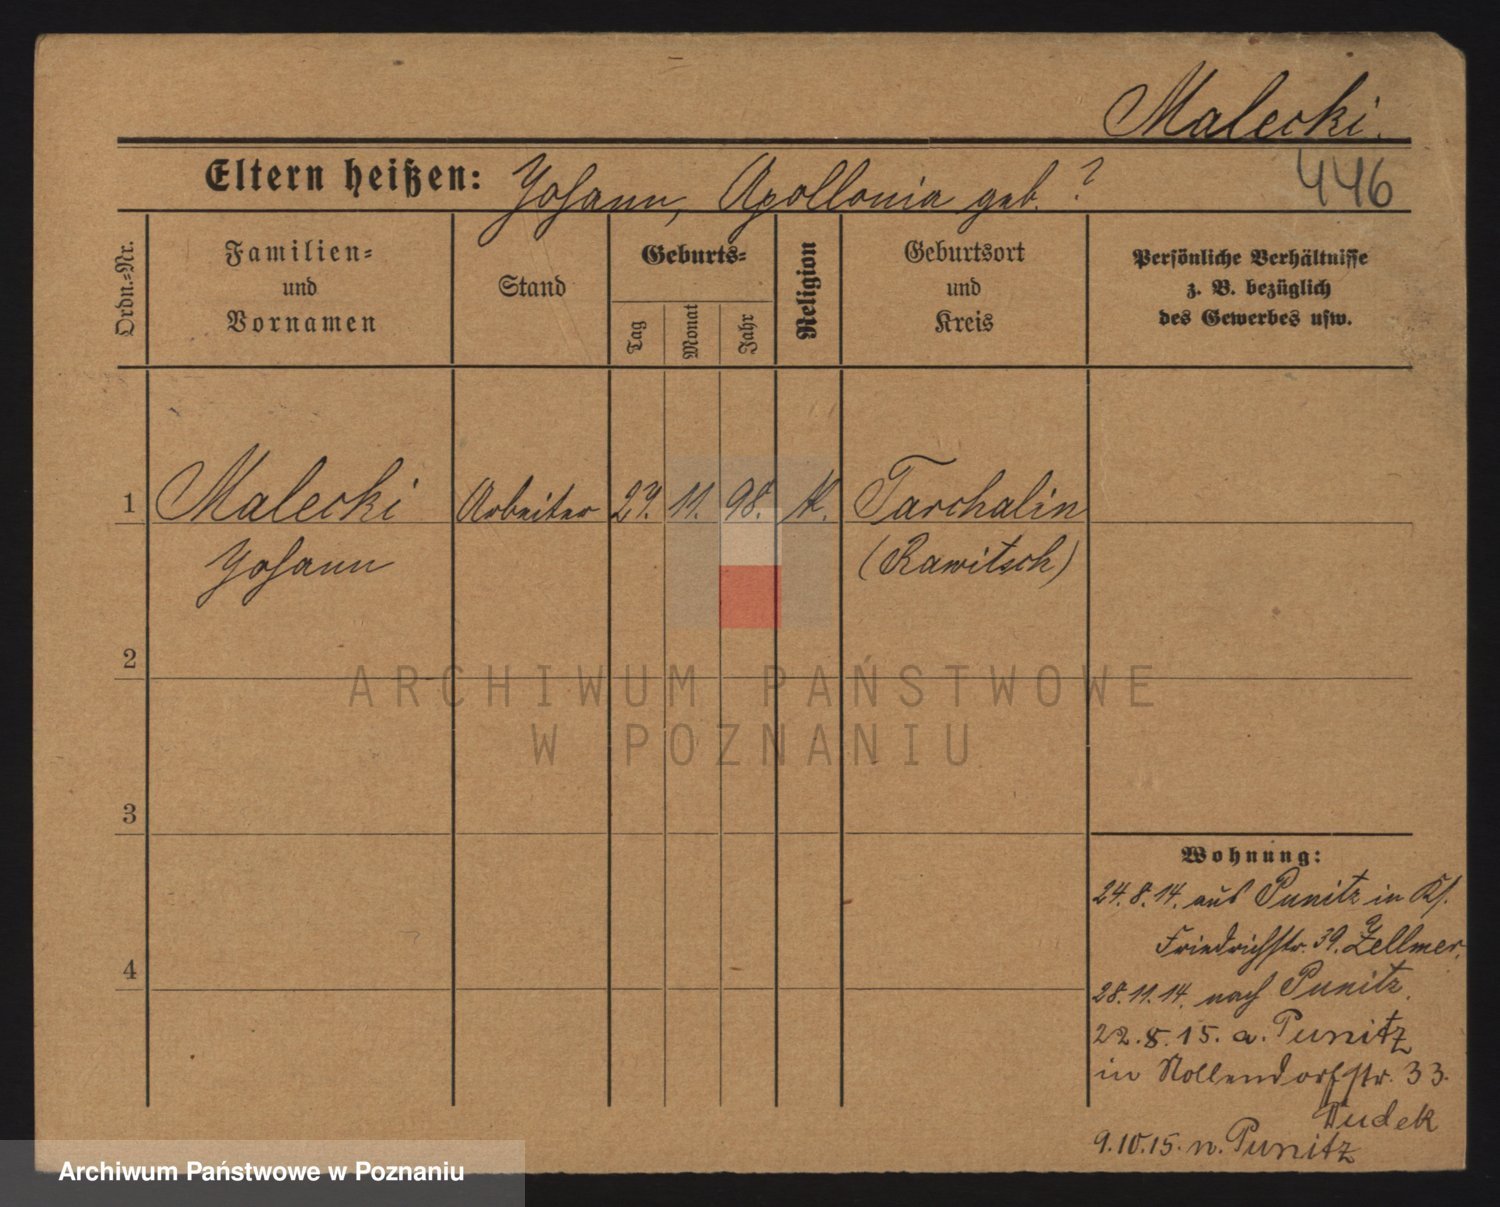 Malecki.
446
Eltern heißen: Johann, Apollonia geb. ?
Ordn.-Nr.
Familien-
und
Vornamen
Stand
Geburts-
Tag
Monat
Jahr
Religion
Geburtsort
und
Kreis
Persönliche Verhältnisse
z. B. bezüglich
des Gewerbes usw.
1 Malecki Arbeiter 27. 11. 98. K. Tarchalin
Johann (Rawitsch)
2
3
4
Wohnung:
24.8.14. aus Punitz in
Friedrichstr. 39. Zellmer.
28.11.14. nach Punitz.
22.8.15. a. Punitz
in Nollendorfstr. 33.
Dudek
9.10.15. n. Punitz
ARCHIWUM PAŃSTWOWE
W POZNANIU
Archiwum Państwowe w Poznaniu